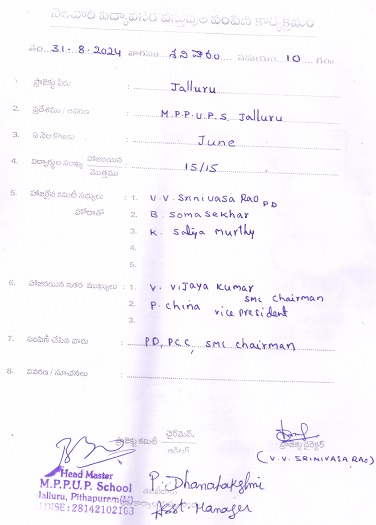 నెలవారి విద్యావసర వస్తువుల పంపిణి కార్యక్రమం
తేది 31-8-2024 వారము శనివారం సమయం 10 గంల
1. ప్రాజెక్టు పేరు : Jalluru
2. ప్రదేశము / ఆవరణ : M.P.P.U.P.S, Jalluru
3. ఏ నెల కొఱకు : June
4. విద్యార్థుల సంఖ్య హాజరయిన / మొత్తము : 15/15
5. హాజరైన కమిటీ సభ్యులు : 1. V.V. Srinivasa Rao PD
హోదాతో 2. B. Somasekhar
3. K. Satya Murthy
4.
5.
6. హాజరయిన ఇతర ముఖ్యులు : 1. V. Vijaya Kumar SMC Chairman
2. P. China vice president
3.
7. పంపిణీ చేసిన వారు : PD, PCC, SMC chairman
8. వివరణ / సూచనలు :
ప్రాజెక్టు కమిటీ ఛైర్మెన్ ప్రాజెక్టు డైరెక్టర్
(V.V. SRINIVASA RAO)
Head Master
M.P.P.U.P. School
Jalluru, Pithapuram(M)
UDISE: 28142102163
P. Dhanalakshmi
Asst. Manager